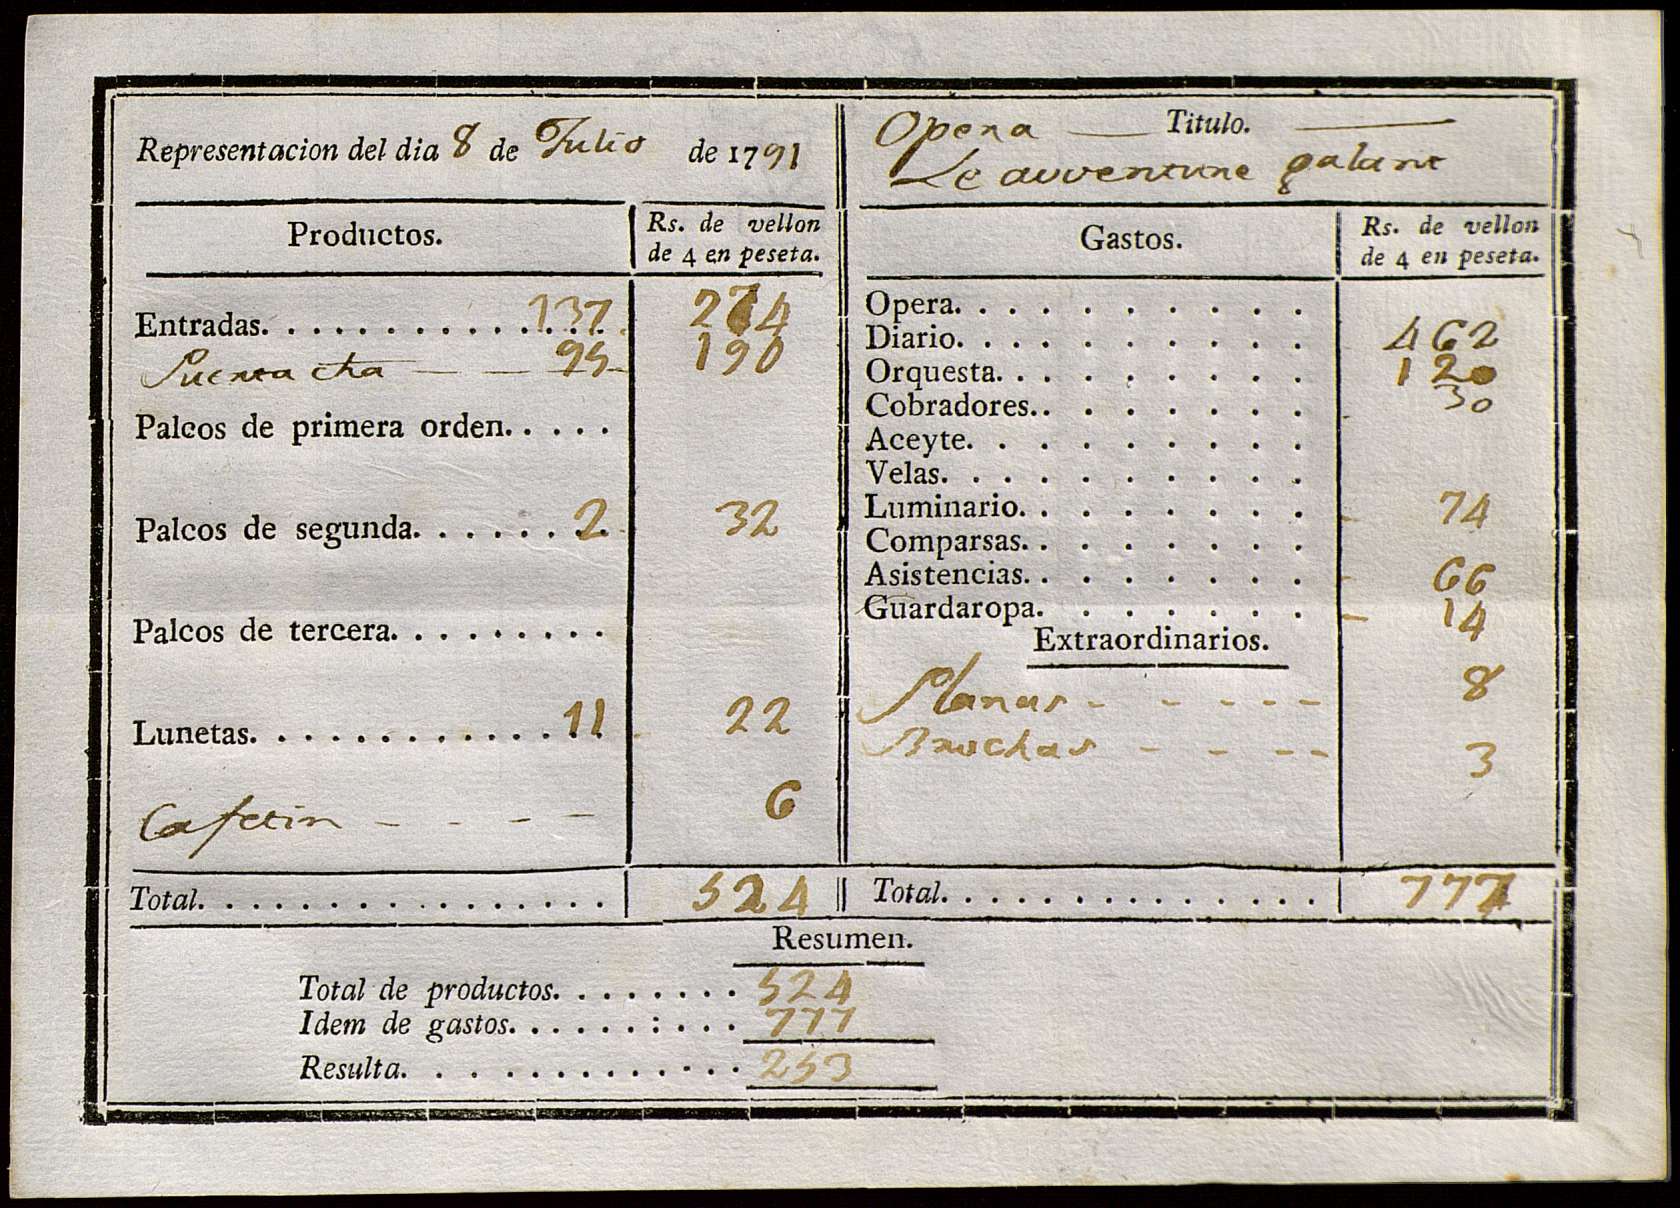 Representacion del dia 8 de Julio de 1791
Opera — Titulo. —
Le avventure galant
Productos.
Rs. de vellon
de 4 en peseta.
Gastos.
Rs. de vellon
de 4 en peseta.
Entradas. . . . . . . . . . . . . . 137 274
Puerta cha — — — 95 190
Palcos de primera orden. . . . .
Palcos de segunda. . . . . . . 2 32
Palcos de tercera. . . . . . . . .
Lunetas. . . . . . . . . . . . . . 11 22
Cafetin - - - - 6
Total. . . . . . . . . . . . . . . . . 524
Opera. . . . . . . . . .
Diario. . . . . . . . . . 462
Orquesta. . . . . . . . . 120
Cobradores. . . . . . . . 30
Aceyte. . . . . . . . .
Velas. . . . . . . . . .
Luminario. . . . . . . . 74
Comparsas. . . . . . . .
Asistencias. . . . . . . . 66
Guardaropa. . . . . . . 14
Extraordinarios.
Planas - - - - - 8
Bruchas - - - - 3
Total. . . . . . . . . . . . . . . 777
Resumen.
Total de productos. . . . . . . . 524
Idem de gastos. . . . . . : . . . 777
Resulta. . . . . . . . . . . . . 253